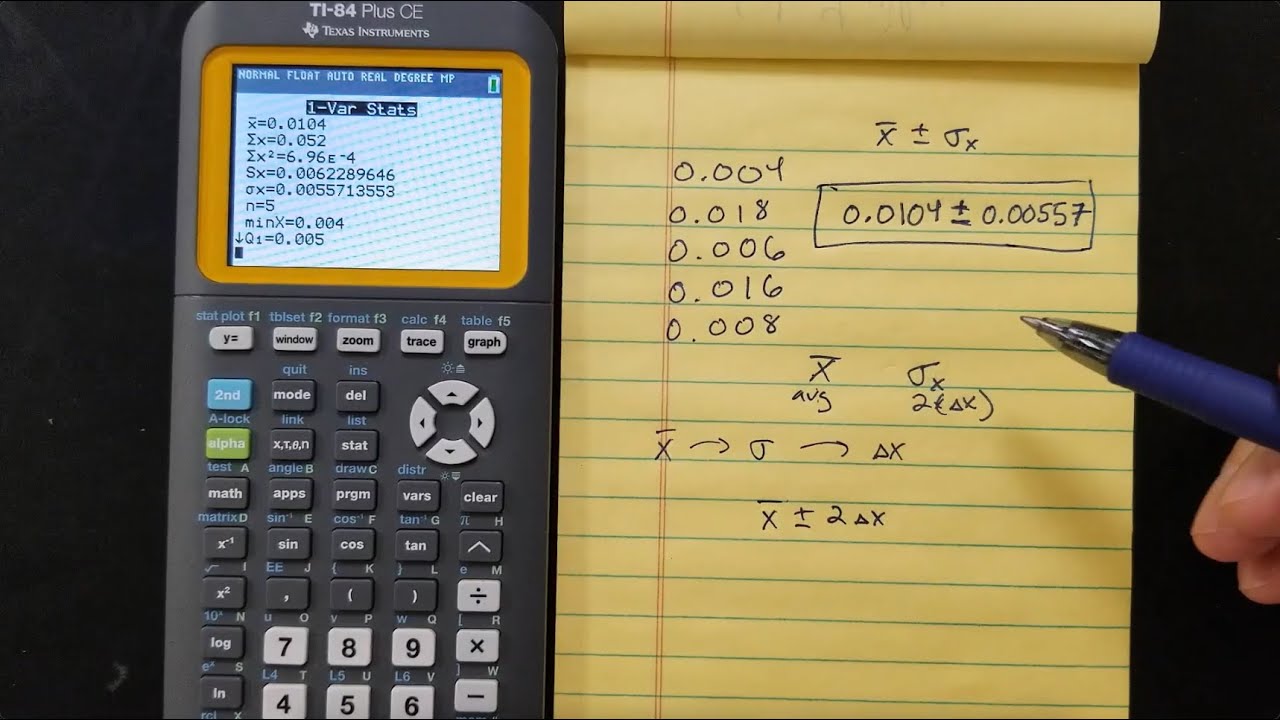 TI-84 Plus CE
TEXAS INSTRUMENTS
NORMAL FLOAT AUTO REAL DEGREE MP
1-Var Stats
x̄=0.0104
Σx=0.052
Σx²=6.96E-4
Sx=0.0062289646
σx=0.0055713553
n=5
minX=0.004
↓Q₁=0.005
stat plot f1 tblset f2 format f3 calc f4 table f5
y= window zoom trace graph
quit ins
2nd mode del
A-lock link list
alpha x,τ,θ,n stat
test A angle B draw C distr
math apps prgm vars clear
matrix D sin⁻¹ E cos⁻¹ F tan⁻¹ G π H
x⁻¹ sin cos tan ^
√ I EE J { K } L e M
x² , ( ) ÷
10ˣ N u O v P w Q [ R
log 7 8 9 ×
eˣ S L4 T L5 U L6 V ] W
ln 4 5 6 −
rcl X
x̄ ± σx
0.004
0.018
0.0104 ± 0.00557
0.006
0.016
0.008
x̄ σx
avg 2(Δx)
x̄ → σ → Δx
x̄ ± 2Δx